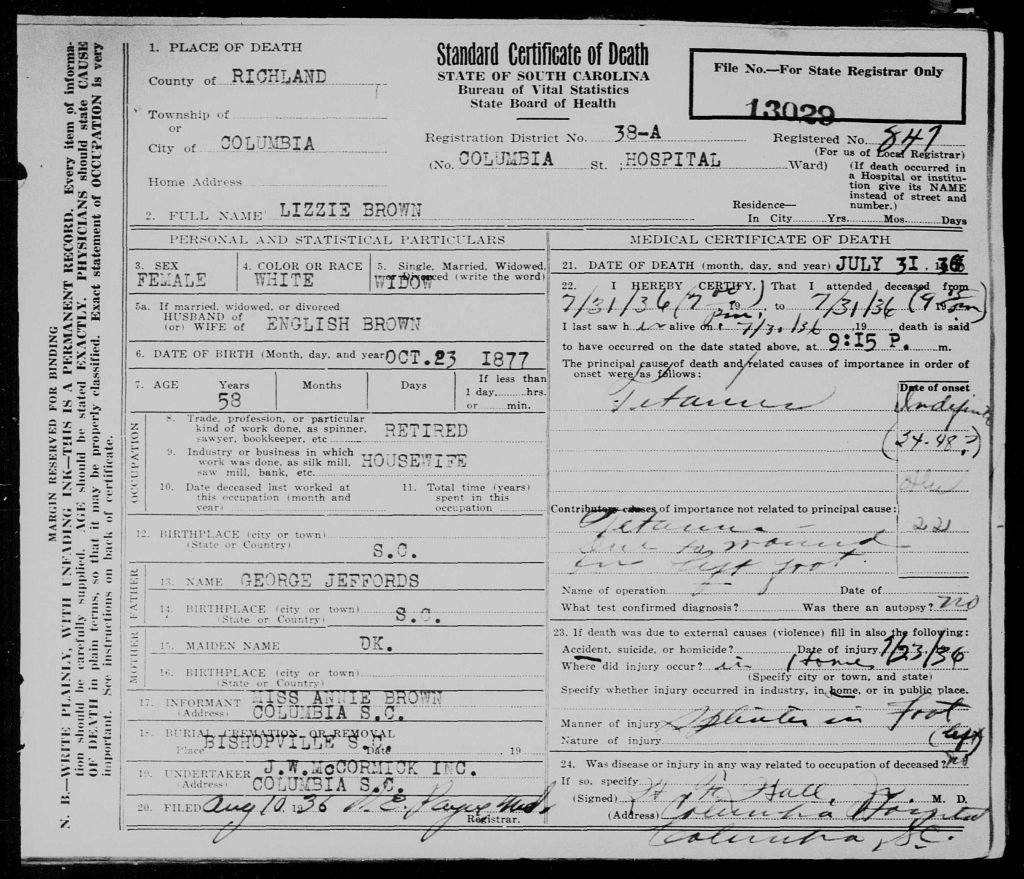 MARGIN RESERVED FOR BINDING
N. B.—WRITE PLAINLY, WITH UNFADING INK—THIS IS A PERMANENT RECORD. Every item of informa-
tion should be carefully supplied. AGE should be stated EXACTLY. PHYSICIANS should state CAUSE
OF DEATH in plain terms, so that it may be properly classified. Exact statement of OCCUPATION is very
important. See instructions on back of certificate.
1. PLACE OF DEATH
County of RICHLAND
Township of
or
City of COLUMBIA
Home Address
Standard Certificate of Death
STATE OF SOUTH CAROLINA
Bureau of Vital Statistics
State Board of Health
File No.—For State Registrar Only
13029
Registration District No. 38-A
Registered No. 847
(For us of Local Registrar)
(No. COLUMBIA St. , HOSPITAL Ward)
(If death occurred in
a Hospital or institu-
tion give its NAME
instead of street and
number.)
2. FULL NAME LIZZIE BROWN
Residence—
In City Yrs. Mos. Days
PERSONAL AND STATISTICAL PARTICULARS
3. SEX
FEMALE
4. COLOR OR RACE
WHITE
5. Single, Married, Widowed,
or Divorced (write the word)
WIDOW
5a. If married, widowed, or divorced
HUSBAND of
(or) WIFE of ENGLISH BROWN
6. DATE OF BIRTH (Month, day, and year OCT.23 1877
7. AGE Years Months Days If less than
58 1 day, hrs.
or min.
OCCUPATION
8. Trade, profession, or particular
kind of work done, as spinner,
sawyer, bookkeeper, etc RETIRED
9. Industry or business in which
work was done, as silk mill,
saw mill, bank, etc. HOUSEWIFE
10. Date deceased last worked at
this occupation (month and
year)
11. Total time (years)
spent in this
occupation
12. BIRTHPLACE (city or town)
(State or Country) S.C.
FATHER
13. NAME GEORGE JEFFORDS
14. BIRTHPLACE (city or town)
(State or Country) S.C.
MOTHER
15. MAIDEN NAME DK.
16. BIRTHPLACE (city or town)
(State or Country)
17. INFORMANT MISS ANNIE BROWN
(Address) COLUMBIA S.C.
18. BURIAL CREMATION OR REMOVAL
Place BISHOPVILLE S.C. Date 19
19. UNDERTAKER J.W.McCORMICK INC.
(Address) COLUMBIA S.C.
20. FILED Aug 10 1936
Registrar.
MEDICAL CERTIFICATE OF DEATH
21. DATE OF DEATH (month, day, and year) JULY 31. 36
22. I HEREBY CERTIFY, That I attended deceased from
7/31/36 (7 00 pm.) 19 to 7/31/36 (9 15 pm) 19
I last saw h er alive on 7/31/36 19 , death is said
to have occurred on the date stated above, at 9:15 P. m.
The principal cause of death and related causes of importance in order of
onset were as follows:
Date of onset
Tetanus Indefinite
(24-48?)
Contributory causes of importance not related to principal cause:
Tetanus - 22
due to wound
in left foot.
Name of operation Date of
What test confirmed diagnosis? Was there an autopsy? no
23. If death was due to external causes (violence) fill in also the following:
Accident, suicide, or homicide? Date of injury 7/23/36
Where did injury occur? in Home
(Specify city or town, and state)
Specify whether injury occurred in industry, in home, or in public place.
Manner of injury Splinter in foot
Nature of injury (left)
24. Was disease or injury in any way related to occupation of deceased? no
If so, specify
(Signed) Hall, Jr. M. D.
(Address) Columbia Hospital
Columbia, S.C.